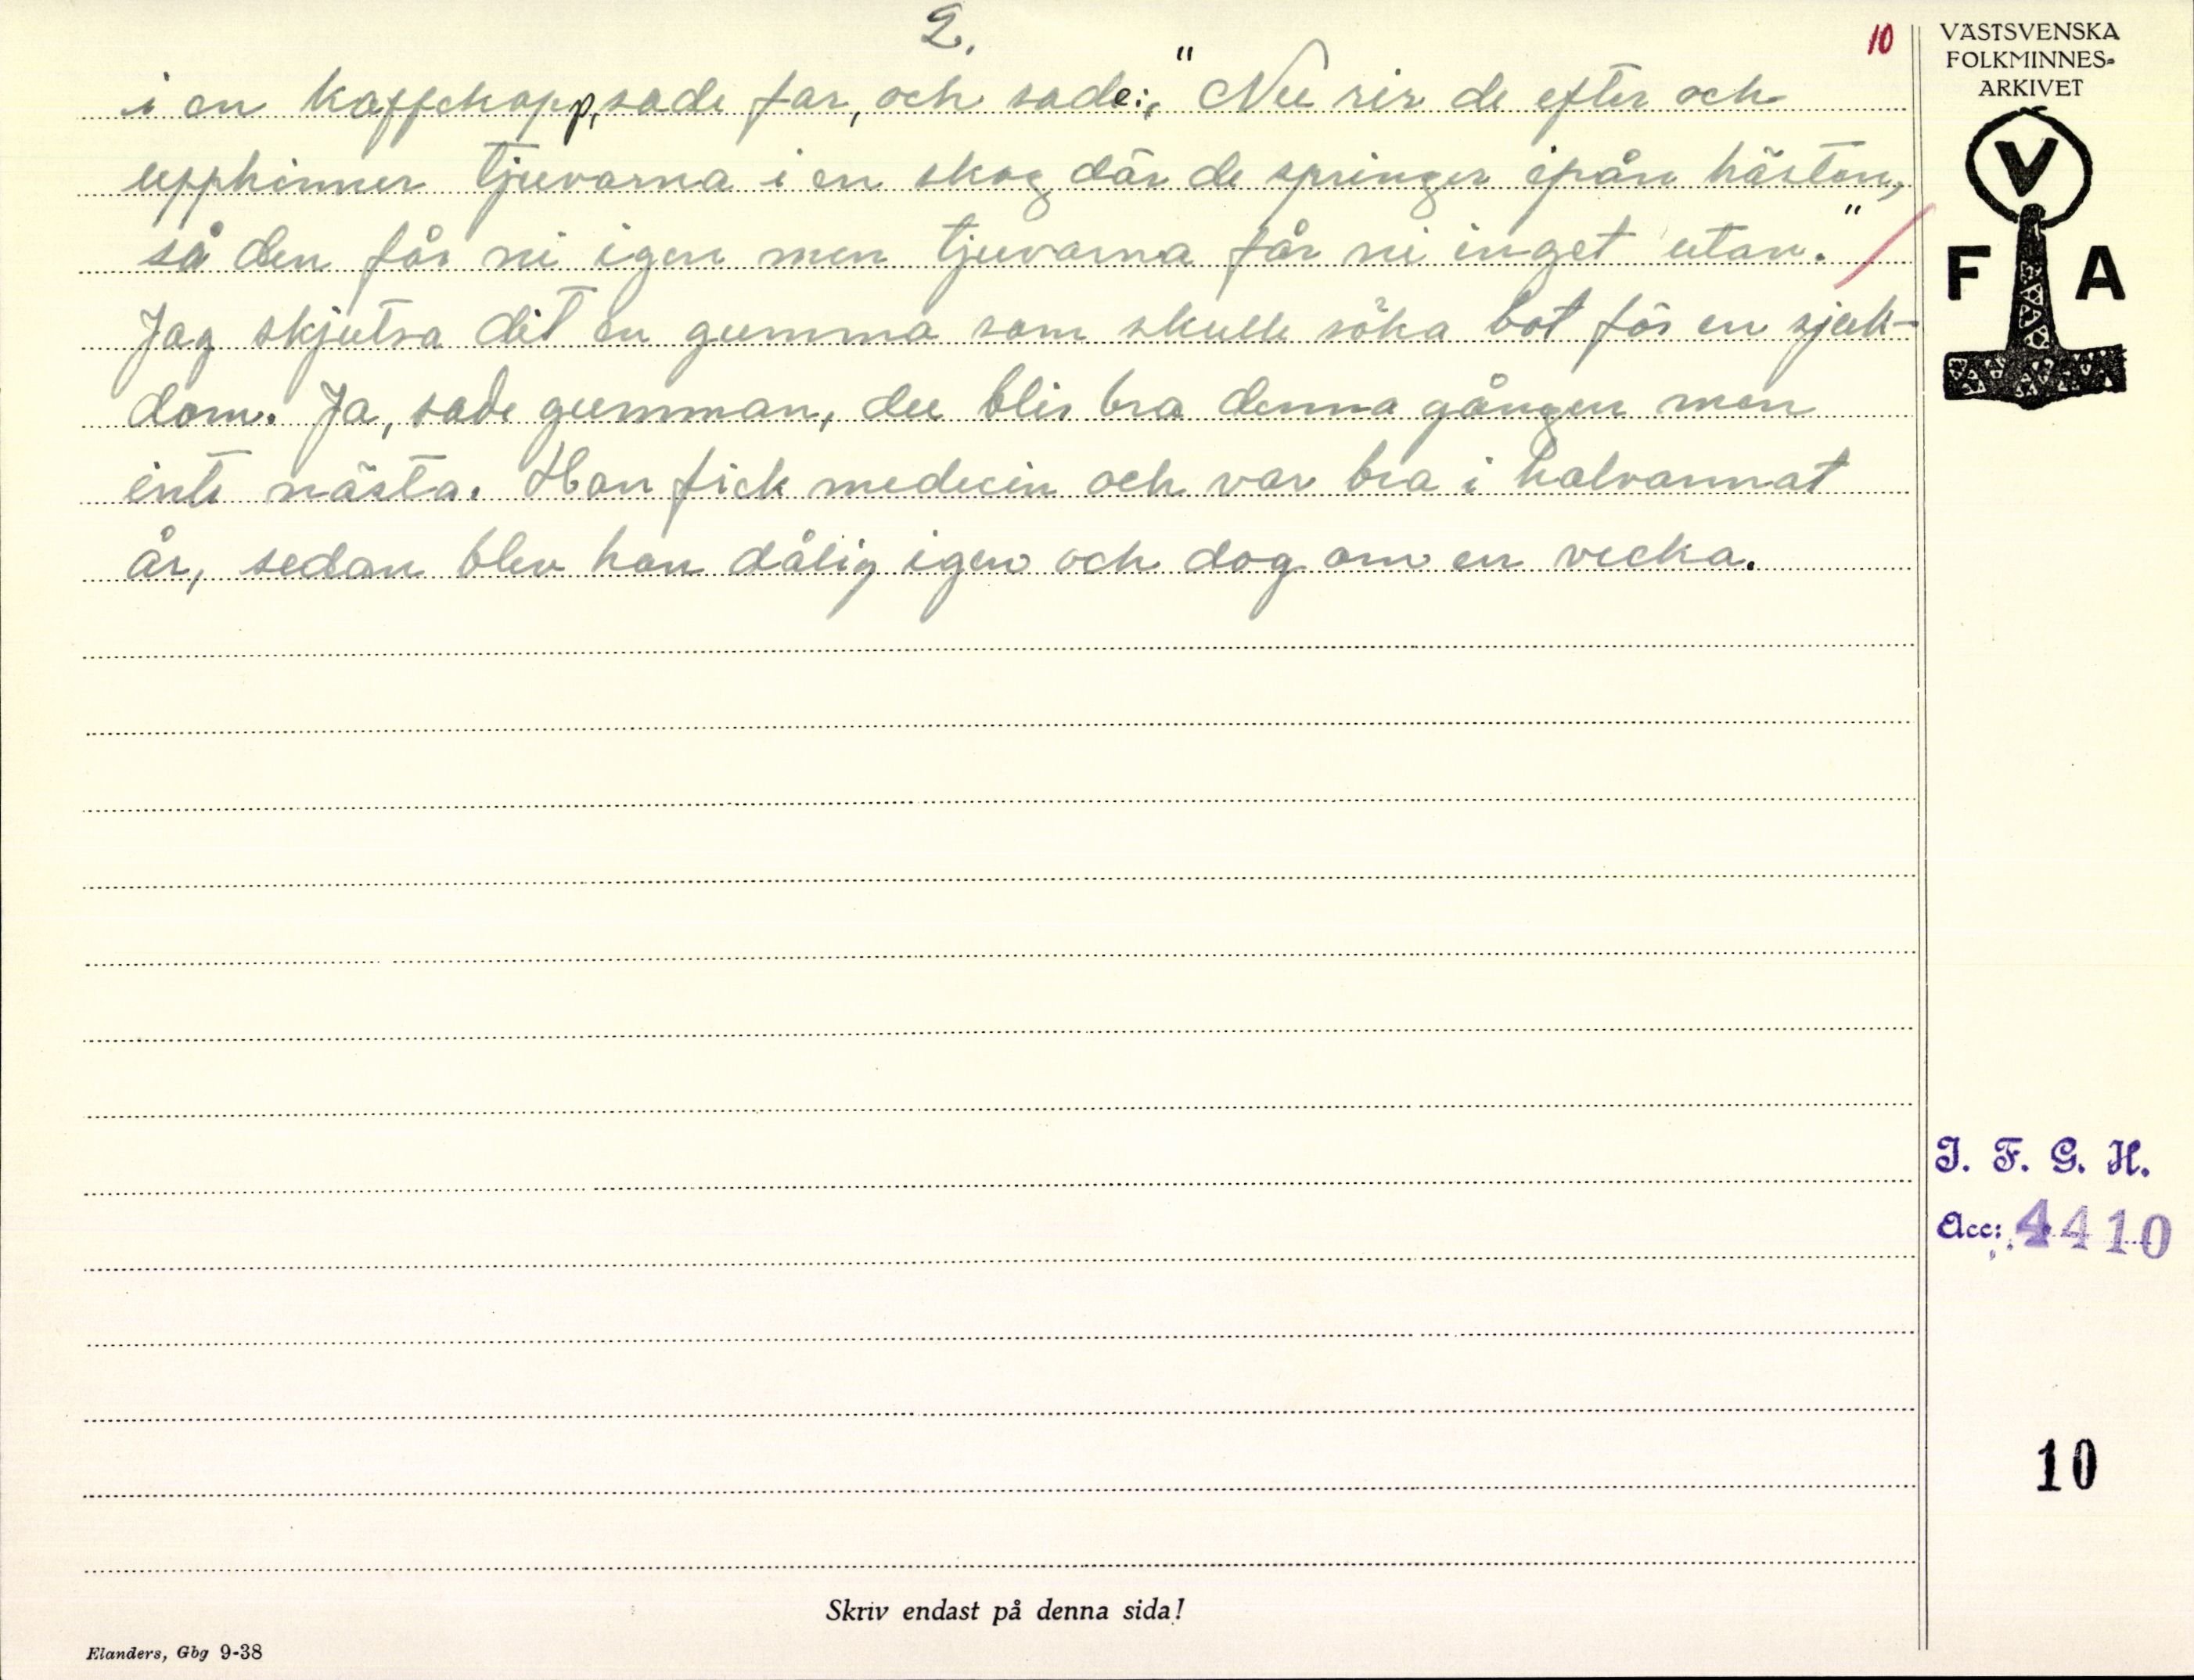 2.
10
i en kaffekopp, sade far, och sade: "Nu rir de efter och
upphinner tjuvarna i en skog där de springer ifrån hästen,
så den får ni igen men tjuvarna får ni inget utav."
Jag skjutsa dit en gumma som skulle söka bot för en sjuk-
dom. Ja, sade gumman, du blir bra denna gången men
inte nästa. Han fick medecin och var bra i halvannat
år, sedan blev han dålig igen och dog om en vecka.
VÄSTSVENSKA
FOLKMINNES-
ARKIVET
V
F A
I. F. G. H.
Acc: 4410
10
Skriv endast på denna sida!
Elanders, Gbg 9-38